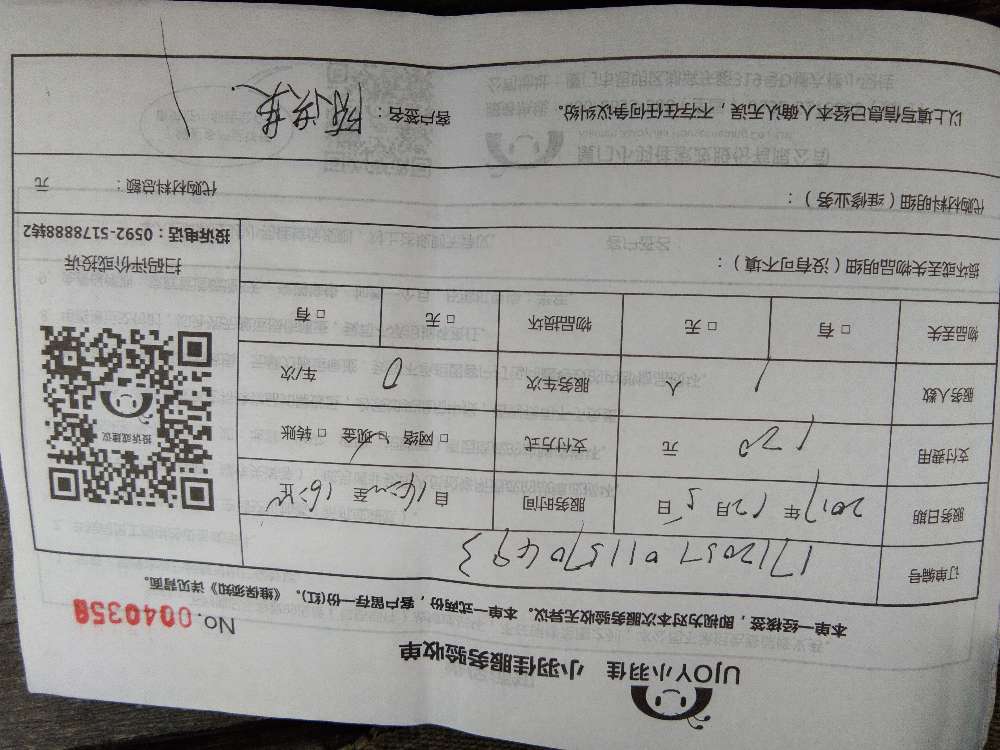 UJOY小羽佳 小羽佳服务验收单
No.0040358
本单一经核签，即视为对本次服务验收无异议。本单一式两份，客户留存一份(红)。《维保须知》详见背面。
订单编号 17120570115704493
服务日期 2017年12月5日 服务时间 自14:00至16:00
支付费用 120元 支付方式 □网络 □现金 □转账
服务人数 1人 服务车次 0车/次
物品丢失 □有 □无 物品损坏 □无 □有
损坏或丢失物品明细（没有可不填）：
投诉或建议
扫码评价或投诉
投诉电话：0592-5178888转2
代购材料明细（维修业务）：
代购材料总额： 元
以上填写信息已经本人确认无误，不存在任何争议纠纷。 客户签名：